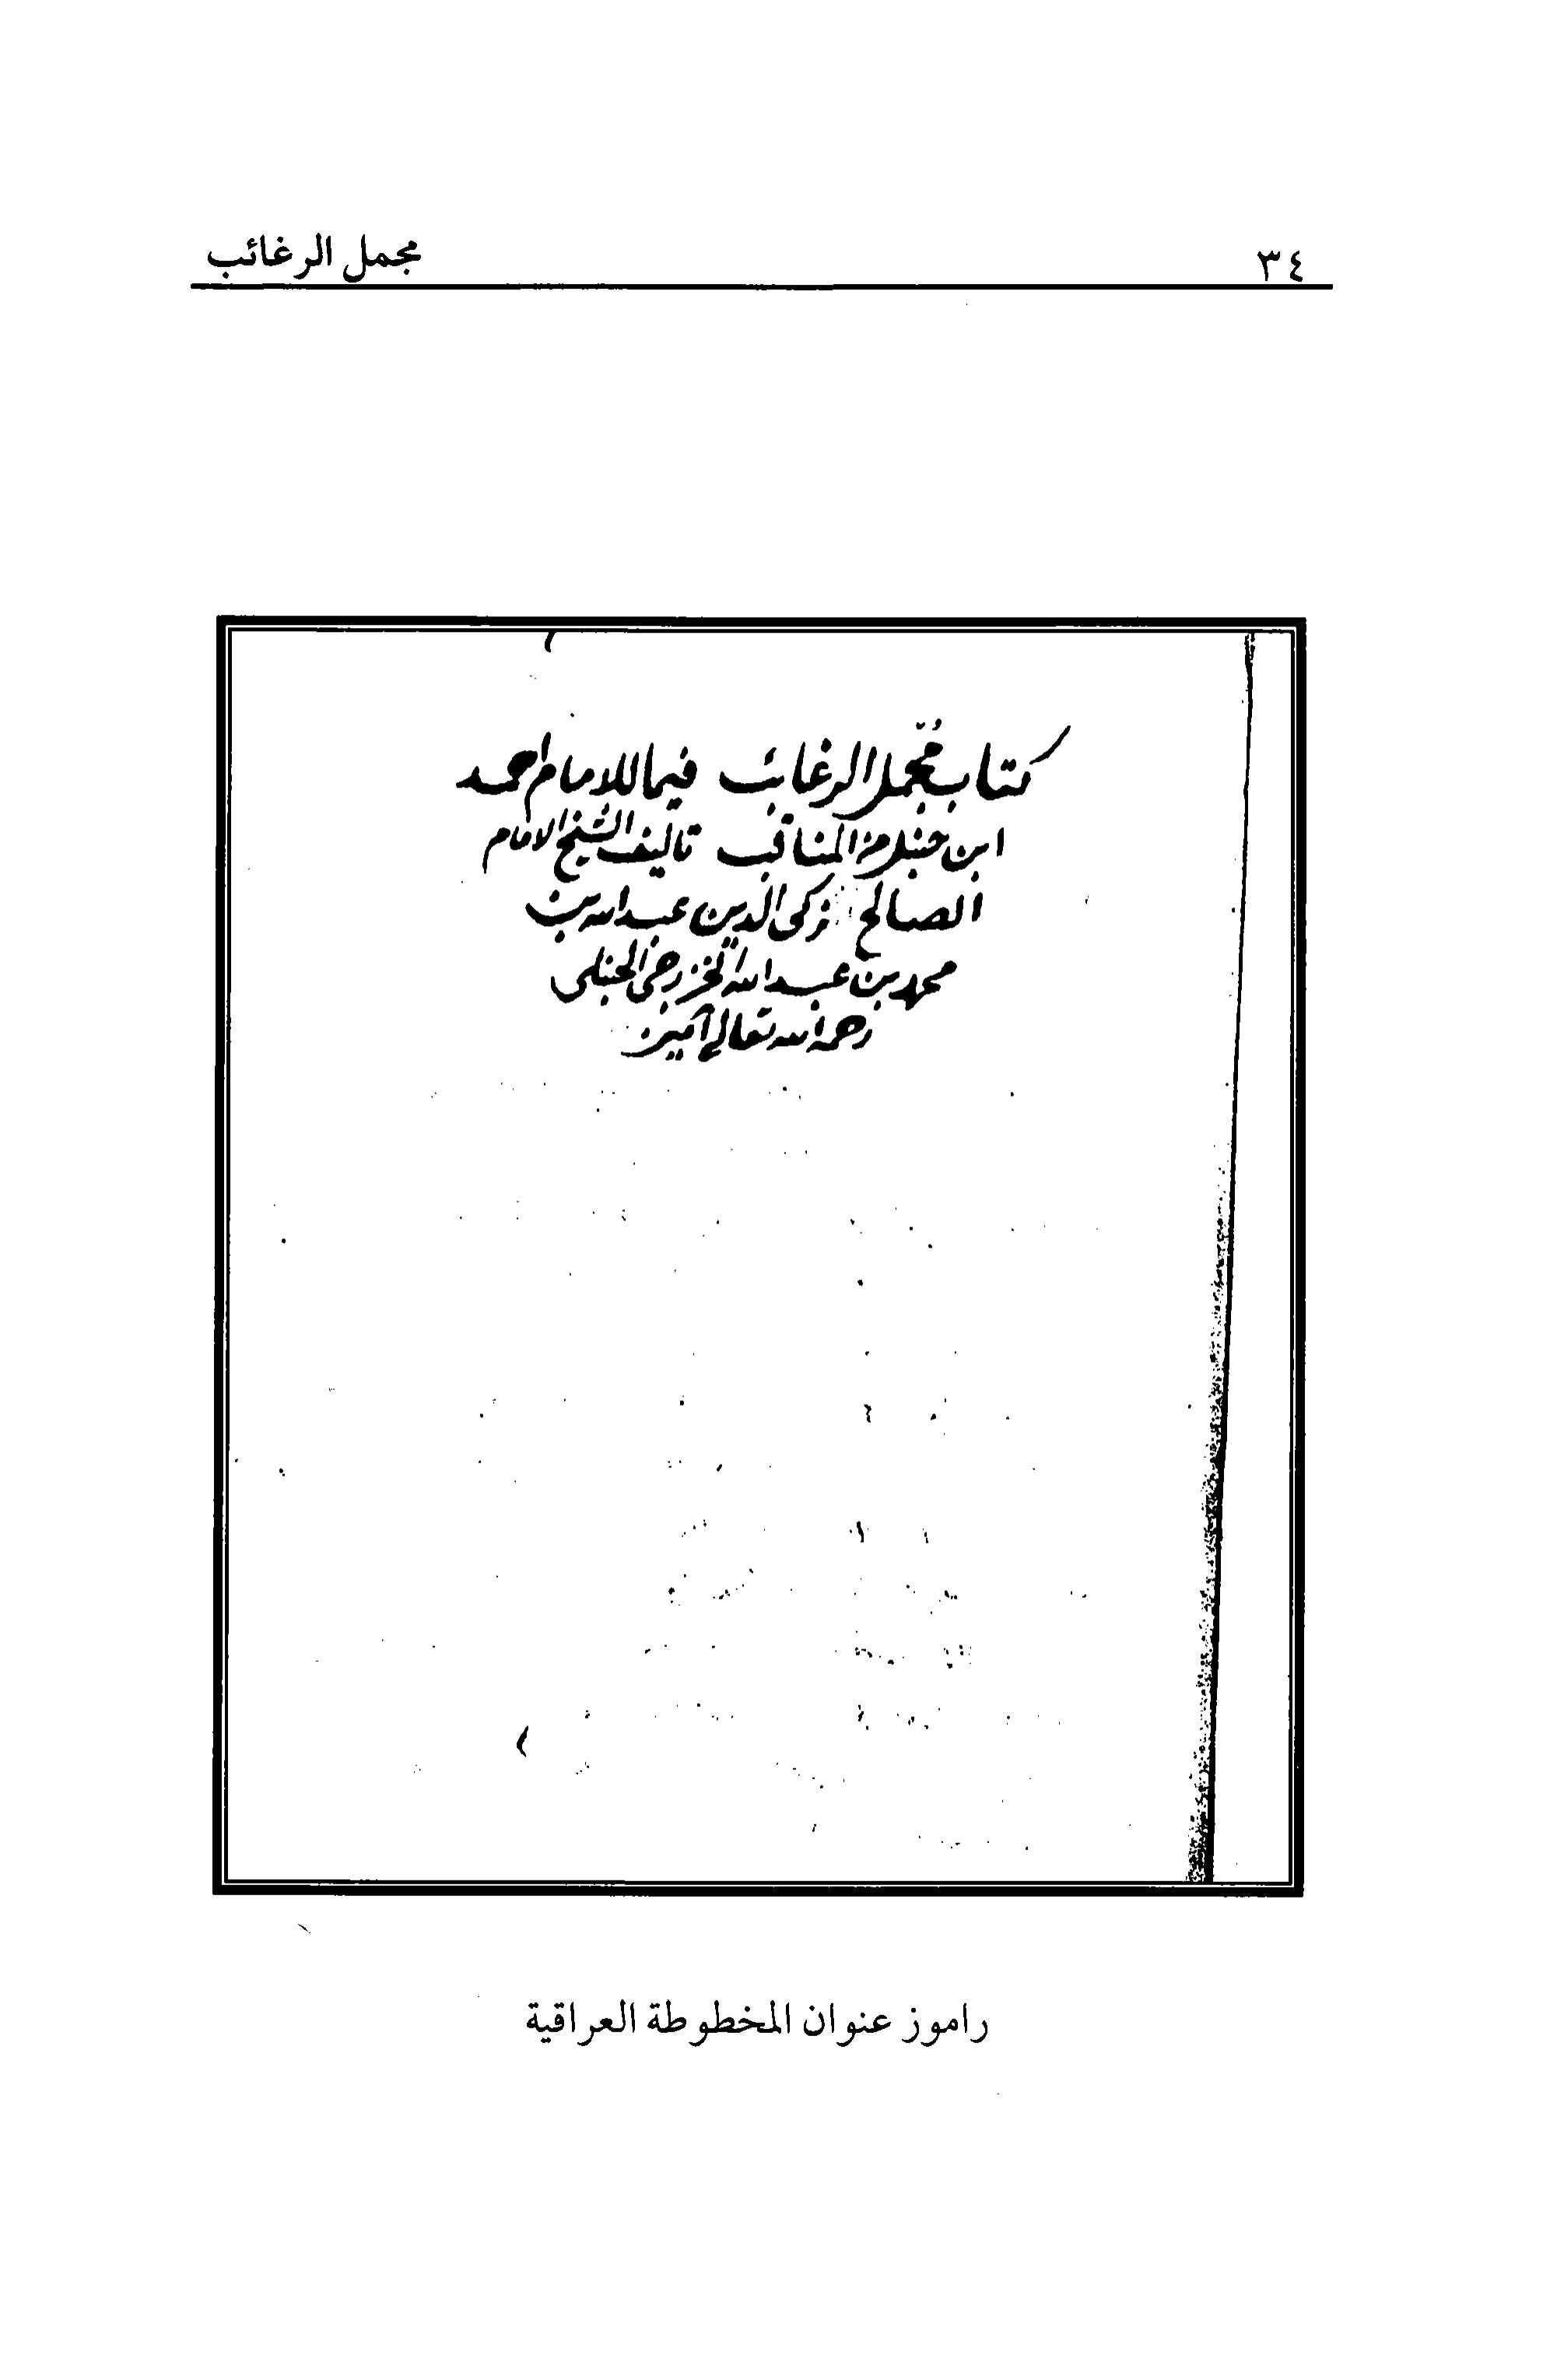 ٣٤
مجمل الرغائب
كتاب مُجّمل الرغائب فيما للامام احمد
ابن حنبل من المناقب تاليف الشيخ الامام
الصالح زكى الدين عبد الله بن
محمد بن عبد الله الخزرجى الحنبلى
رحمه الله تعالى آمين
راموز عنوان المخطوطة العراقية